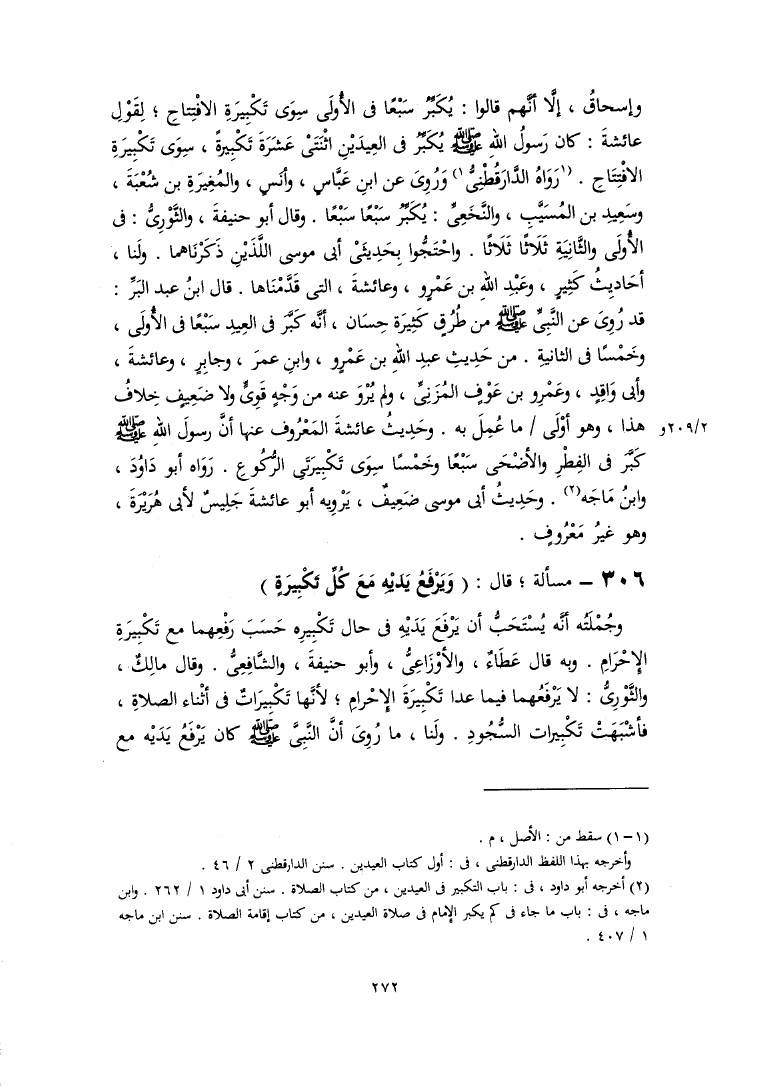 وإسحاقُ ، إلَّا أنَّهم قالوا : يُكَبِّرُ سَبْعًا فى الأُولَى سِوَى تَكْبِيرَةِ الافْتِتاحِ ؛ لِقَوْلِ
عائشةَ : كان رَسولُ اللهِ ﷺ يُكَبِّرُ فى العِيدَيْنِ اثْنَتَىْ عَشَرَةَ تَكْبِيرةً ، سِوَى تَكْبِيرَةِ
الافْتِتَاحِ . (١رَوَاهُ الدَّارَقُطْنِىُّ١) وَرُوِىَ عن ابنِ عَبَّاسٍ ، وأنَسٍ ، والمُغِيرَةِ بن شُعْبَةَ ،
وسَعِيدِ بن المُسَيَّبِ ، والنَّخَعِىِّ : يُكَبِّرُ سَبْعًا سَبْعًا . وقال أبو حنيفةَ ، والثَّوْرِىُّ : فى
الأُولَى والثَّانِيَةِ ثَلَاثًا ثَلَاثًا . واحْتَجُّوا بِحَدِيثَىْ أبى موسى اللَّذَيْنِ ذَكَرْنَاهما . ولَنا ،
أحَاديثُ كَثِيرٍ ، وعَبْدِ اللهِ بن عَمْرٍو ، وعائشةَ ، التى قَدَّمْنَاها . قال ابنُ عبد البَرِّ :
قد رُوِىَ عن النَّبِىِّ ﷺ من طُرُقٍ كَثِيرَةٍ حِسَانٍ ، أنَّه كَبَّرَ فى العِيدِ سَبْعًا فى الأُولَى ،
وخَمْسًا فى الثانيةِ . من حَدِيثِ عبدِ اللهِ بن عَمْرٍو ، وابنِ عمرَ ، وجابِرٍ ، وعائشةَ ،
وأبى وَاقِدٍ ، وعَمْرِو بن عَوْفٍ المُزَنِىِّ ، ولم يُرْوَ عنه من وَجْهٍ قَوِىٍّ ولا ضَعِيفٍ خِلافُ
٢٠٩/٢و هذا ، وهو أوْلَى / ما عُمِلَ به . وحَدِيثُ عائشةَ المَعْرُوف عنها أنَّ رسولَ اللهِ ﷺ
كَبَّرَ فى الفِطْرِ والأضْحَى سَبْعًا وخَمْسًا سِوَى تَكْبِيرَتَىِ الرُّكُوعِ . رَوَاه أبو دَاوُدَ ،
وابنُ مَاجَه(٢) . وحَدِيثُ أبى موسى ضَعِيفٌ ، يَرْوِيه أبو عائشةَ جَلِيسٌ لأبى هُرَيْرَةَ ،
وهو غيرُ مَعْرُوفٍ .
٣٠٦ – مسألة ؛ قال : ( وَيَرْفَعُ يَدَيْهِ مَعَ كُلِّ تَكْبِيرَةٍ )
وجُمْلَتُه أنَّه يُسْتَحَبُّ أن يَرْفَعَ يَدَيْهِ فى حال تَكْبِيرِه حَسَبَ رَفْعِهما مع تَكْبِيرَةِ
الإِحْرَامِ . وبه قال عَطَاءٌ ، والأوْزَاعِىُّ ، وأبو حنيفةَ ، والشَّافِعِىُّ . وقال مالِكٌ ،
والثَّوْرِىُّ : لا يَرْفَعُهما فيما عدا تَكْبِيرَةَ الإِحْرامِ ؛ لأنَّها تَكْبِيرَاتٌ فى أثْناء الصلاةِ ،
فأشْبَهَتْ تَكْبِيرات السُّجُودِ . ولَنا ، ما رُوِىَ أنَّ النَّبِىَّ ﷺ كان يَرْفَعُ يَدَيْه مع
(١-١) سقط من : الأصل ، م .
وأخرجه بهذا اللفظ الدارقطنى ، فى : أول كتاب العيدين . سنن الدارقطنى ٢ / ٤٦ .
(٢) أخرجه أبو داود ، فى : باب التكبير فى العيدين ، من كتاب الصلاة . سنن أبى داود ١ / ٢٦٢ . وابن
ماجه ، فى : باب ما جاء فى كم يكبر الإمام فى صلاة العيدين ، من كتاب إقامة الصلاة . سنن ابن ماجه
١ / ٤٠٧ .
٢٧٢